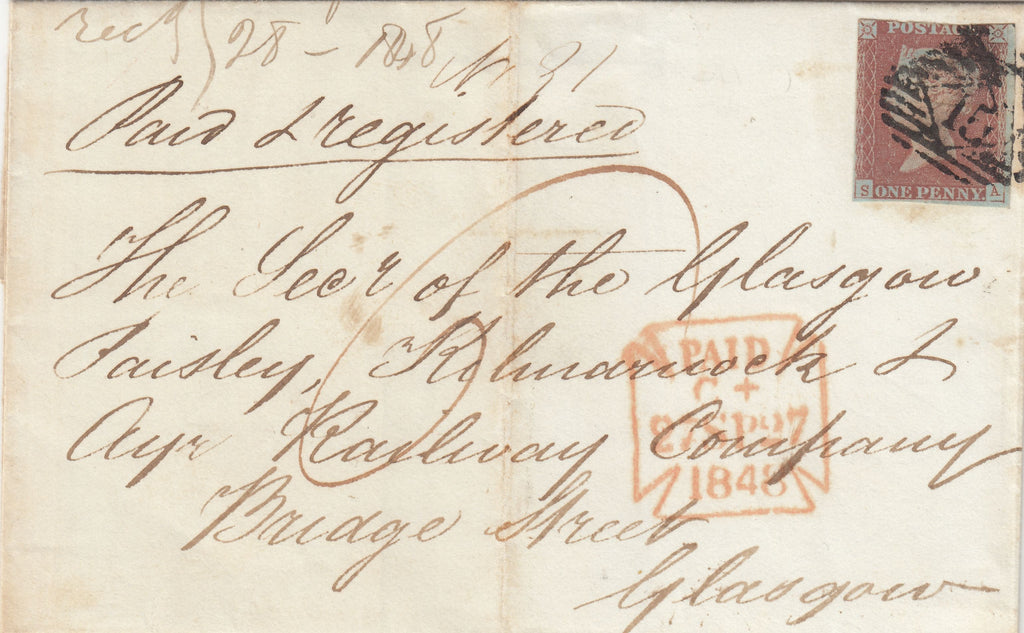 recd 28 - 1848
No. 31
Paid & registered
POSTAGE
13
S ONE PENNY. A
The Secr of the Glasgow
Paisley, Kilmarnock &
Ayr Railway Company
Bridge Street
Glasgow
PAID
1848